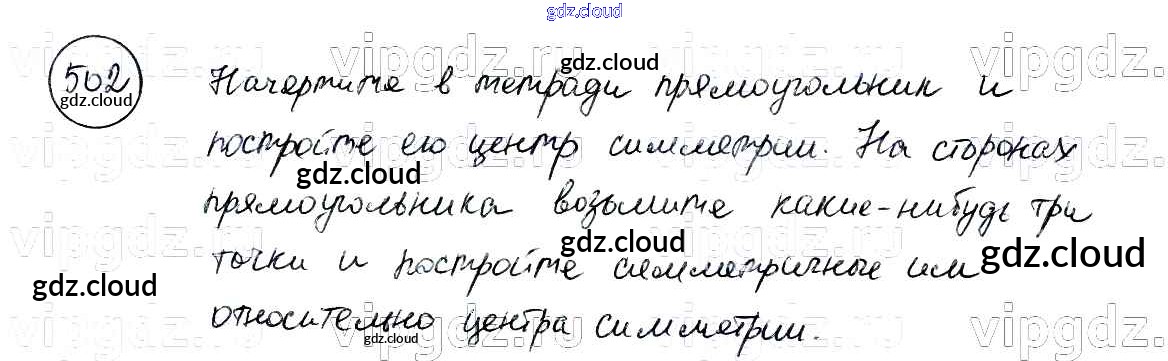 gdz.cloud
gdz.cloud
502 Начертите в тетради прямоугольник и
постройте его центр симметрии. На сторонах
прямоугольника возьмите какие-нибудь три
точки и постройте симметричные им
относительно центра симметрии.
vipgdz.ru
vipgdz.ru
vipgdz.ru
vipgdz.ru
gdz.cloud
gdz.cloud
gdz.cloud
gdz.cloud
gdz.cloud
gdz.cloud
gdz.cloud